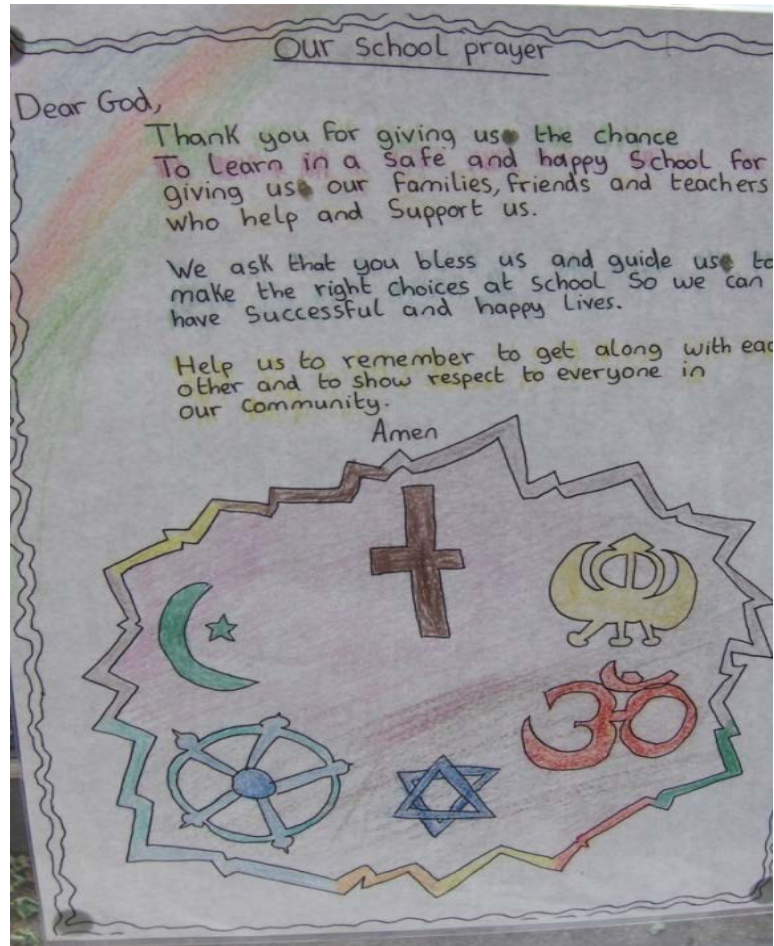 Our School prayer
Dear God,
Thank you for giving us the chance
To Learn in a Safe and happy School for
giving us our families, friends and teachers
who help and Support us.
We ask that you bless us and guide us to
make the right choices at school So we can
have Successful and happy Lives.
Help us to remember to get along with eac
other and to show respect to everyone in
our community.
Amen
ॐ